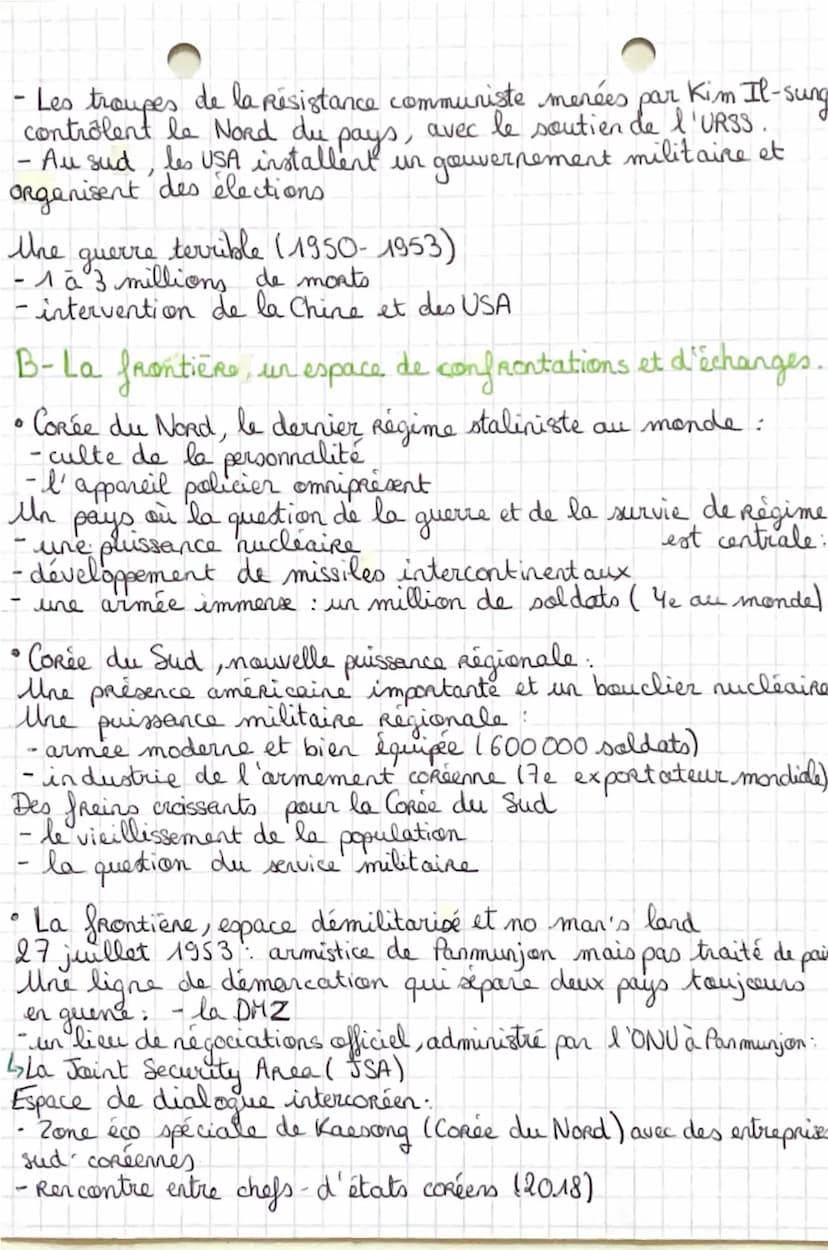 - Les troupes de la Résistance communiste menées par Kim Il-sung
contrôlent le Nord du pays, avec le soutien de l'URSS.
- Au sud, les USA installent un gouvernement militaire et
organisent des élections
Une guerre terrible (1950-1953)
- 1 à 3 millions de morts
- intervention de la Chine et des USA
B- La frontière, un espace de confrontations et d'échanges.
• Corée du Nord, le dernier régime staliniste au monde :
- culte de la personnalité
- l'appareil policier omniprésent
Un pays où la question de la guerre et de la survie de Régime
est centrale :
- une puissance nucléaire
- développement de missiles intercontinentaux
- une armée immense : un million de soldats (4e au monde)
• Corée du Sud, nouvelle puissance régionale :
Une présence américaine importante et un bouclier nucléaire
Une puissance militaire Régionale :
- armée moderne et bien équipée (600 000 soldats)
- industrie de l'armement coréenne (7e exportateur mondiale)
Des freins croissants pour la Corée du Sud
- le vieillissement de la population
- la question du service militaire
• La frontière, espace démilitarisé et no man's land
27 juillet 1953 : armistice de Panmunjon mais pas traité de pai
Une ligne de démarcation qui sépare deux pays toujours
en guerre : - la DMZ
- un lieu de négociations officiel, administré par l'ONU à Panmunjon :
↳ La Joint Security Area (JSA)
Espace de dialogue intercoréen :
- Zone éco spéciale de Kaesong (Corée du Nord) avec des entreprises
sud-coréennes
- Rencontre entre chefs-d'états coréens (2018)